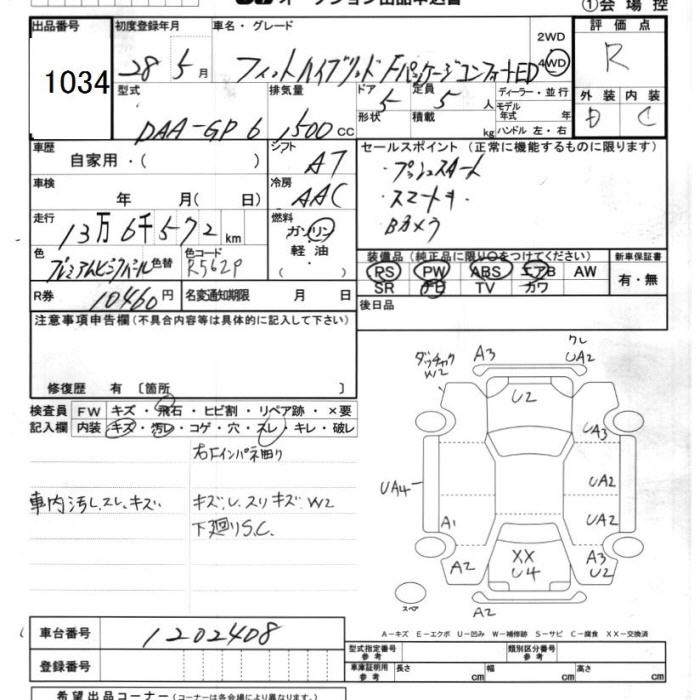 オークション出品申込書
①会場控
出品番号 初度登録年月 車名・グレード 評価点
1034 28年 5月 フィットハイブリッド FパッケージコンフォートED 2WD 4WD R
型式 排気量 ドア 定員 ディーラー・並行 外装 内装
DAA-GP6 1500cc 5 5人 モデル年式 年 D C
形状 積載 kg ハンドル 左・右
車歴 シフト セールスポイント (正常に機能するものに限ります)
自家用・( ) AT ・プッシュスタート
車検 冷房 ・スマートキー
年 月( 日) AAC Bカメラ
走行 燃料
13万6千572km ガソリン
軽油
色 色替 色コード 装備品 (純正品に限り○をつけてください) 新車保証書
プレミアムビジョンパール R562P PS PW ABS エアB AW 有・無
SR ナビ TV カワ
R券 10460円 名変通知期限 月 日 後日品
注意事項申告欄 (不具合内容等は具体的に記入して下さい)
修復歴 有 〔箇所 〕
検査員 FW キズ・飛石・ヒビ割・リペア跡・×要
記入欄 内装 キズ・汚レ・コゲ・穴・スレ・キレ・破レ
車内汚し、スレ、キズ
下廻りS.C.
A3
UA2
W2
U2
UA3
UA4
UA2
UA2
A1
XX
U4
A3
U2
A2
A2
スペア
A-キズ E-エクボ U-凹み W-補修跡 S-サビ C-腐食 XX-交換済
車台番号 1202408
登録番号
型式指定番号 参考 類別区分番号 参考
車庫証明用 参考 長さ cm 幅 cm 高さ cm
希望出品コーナー (コーナーは各会場により異なります。)